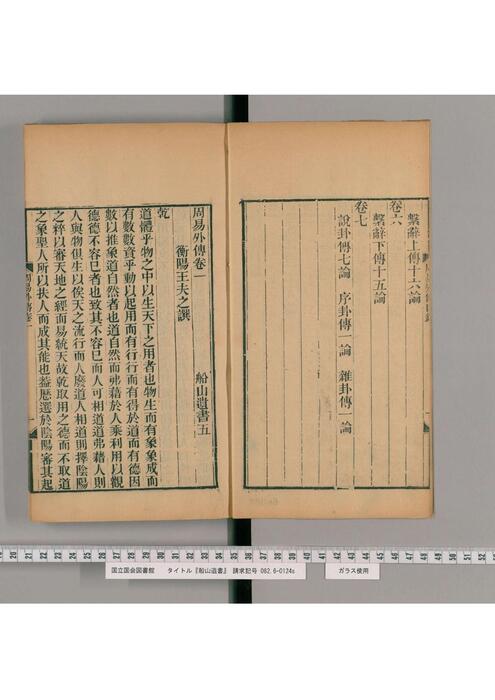 繫辭上傳十六論
卷六
繫辭下傳十五論
卷七
說卦傳七論 序卦傳一論 雜卦傳一論
周易外傳卷一
船山遺書五
衡陽王夫之譔
乾
道體乎物之中以生天下之用者也物生而有象象成而
有數數資乎動以起用而有行行而有得於道而有德因
數以推象道自然者也道自然而弗藉於人乘利用以觀
德德不容已者也致其不容已而人可相道道弗藉人則
人與物俱生以俟天之流行而人廢道人相道則擇陰陽
之粹以審天地之經而易統天故乾取用之德而不取道
之象聖人所以扶人而成其能也蓋歷選於陰陽審其起
周易外傳卷一
一
19 20 21 22 23 24 25 26 27 28 29 30 31 32 33 34 35 36 37 38 39 40 41 42 43 44 45 46 47 48 49 50 51 52
国立国会図書館 タイトル『船山遺書』 請求記号 082.6-0124s
ガラス使用